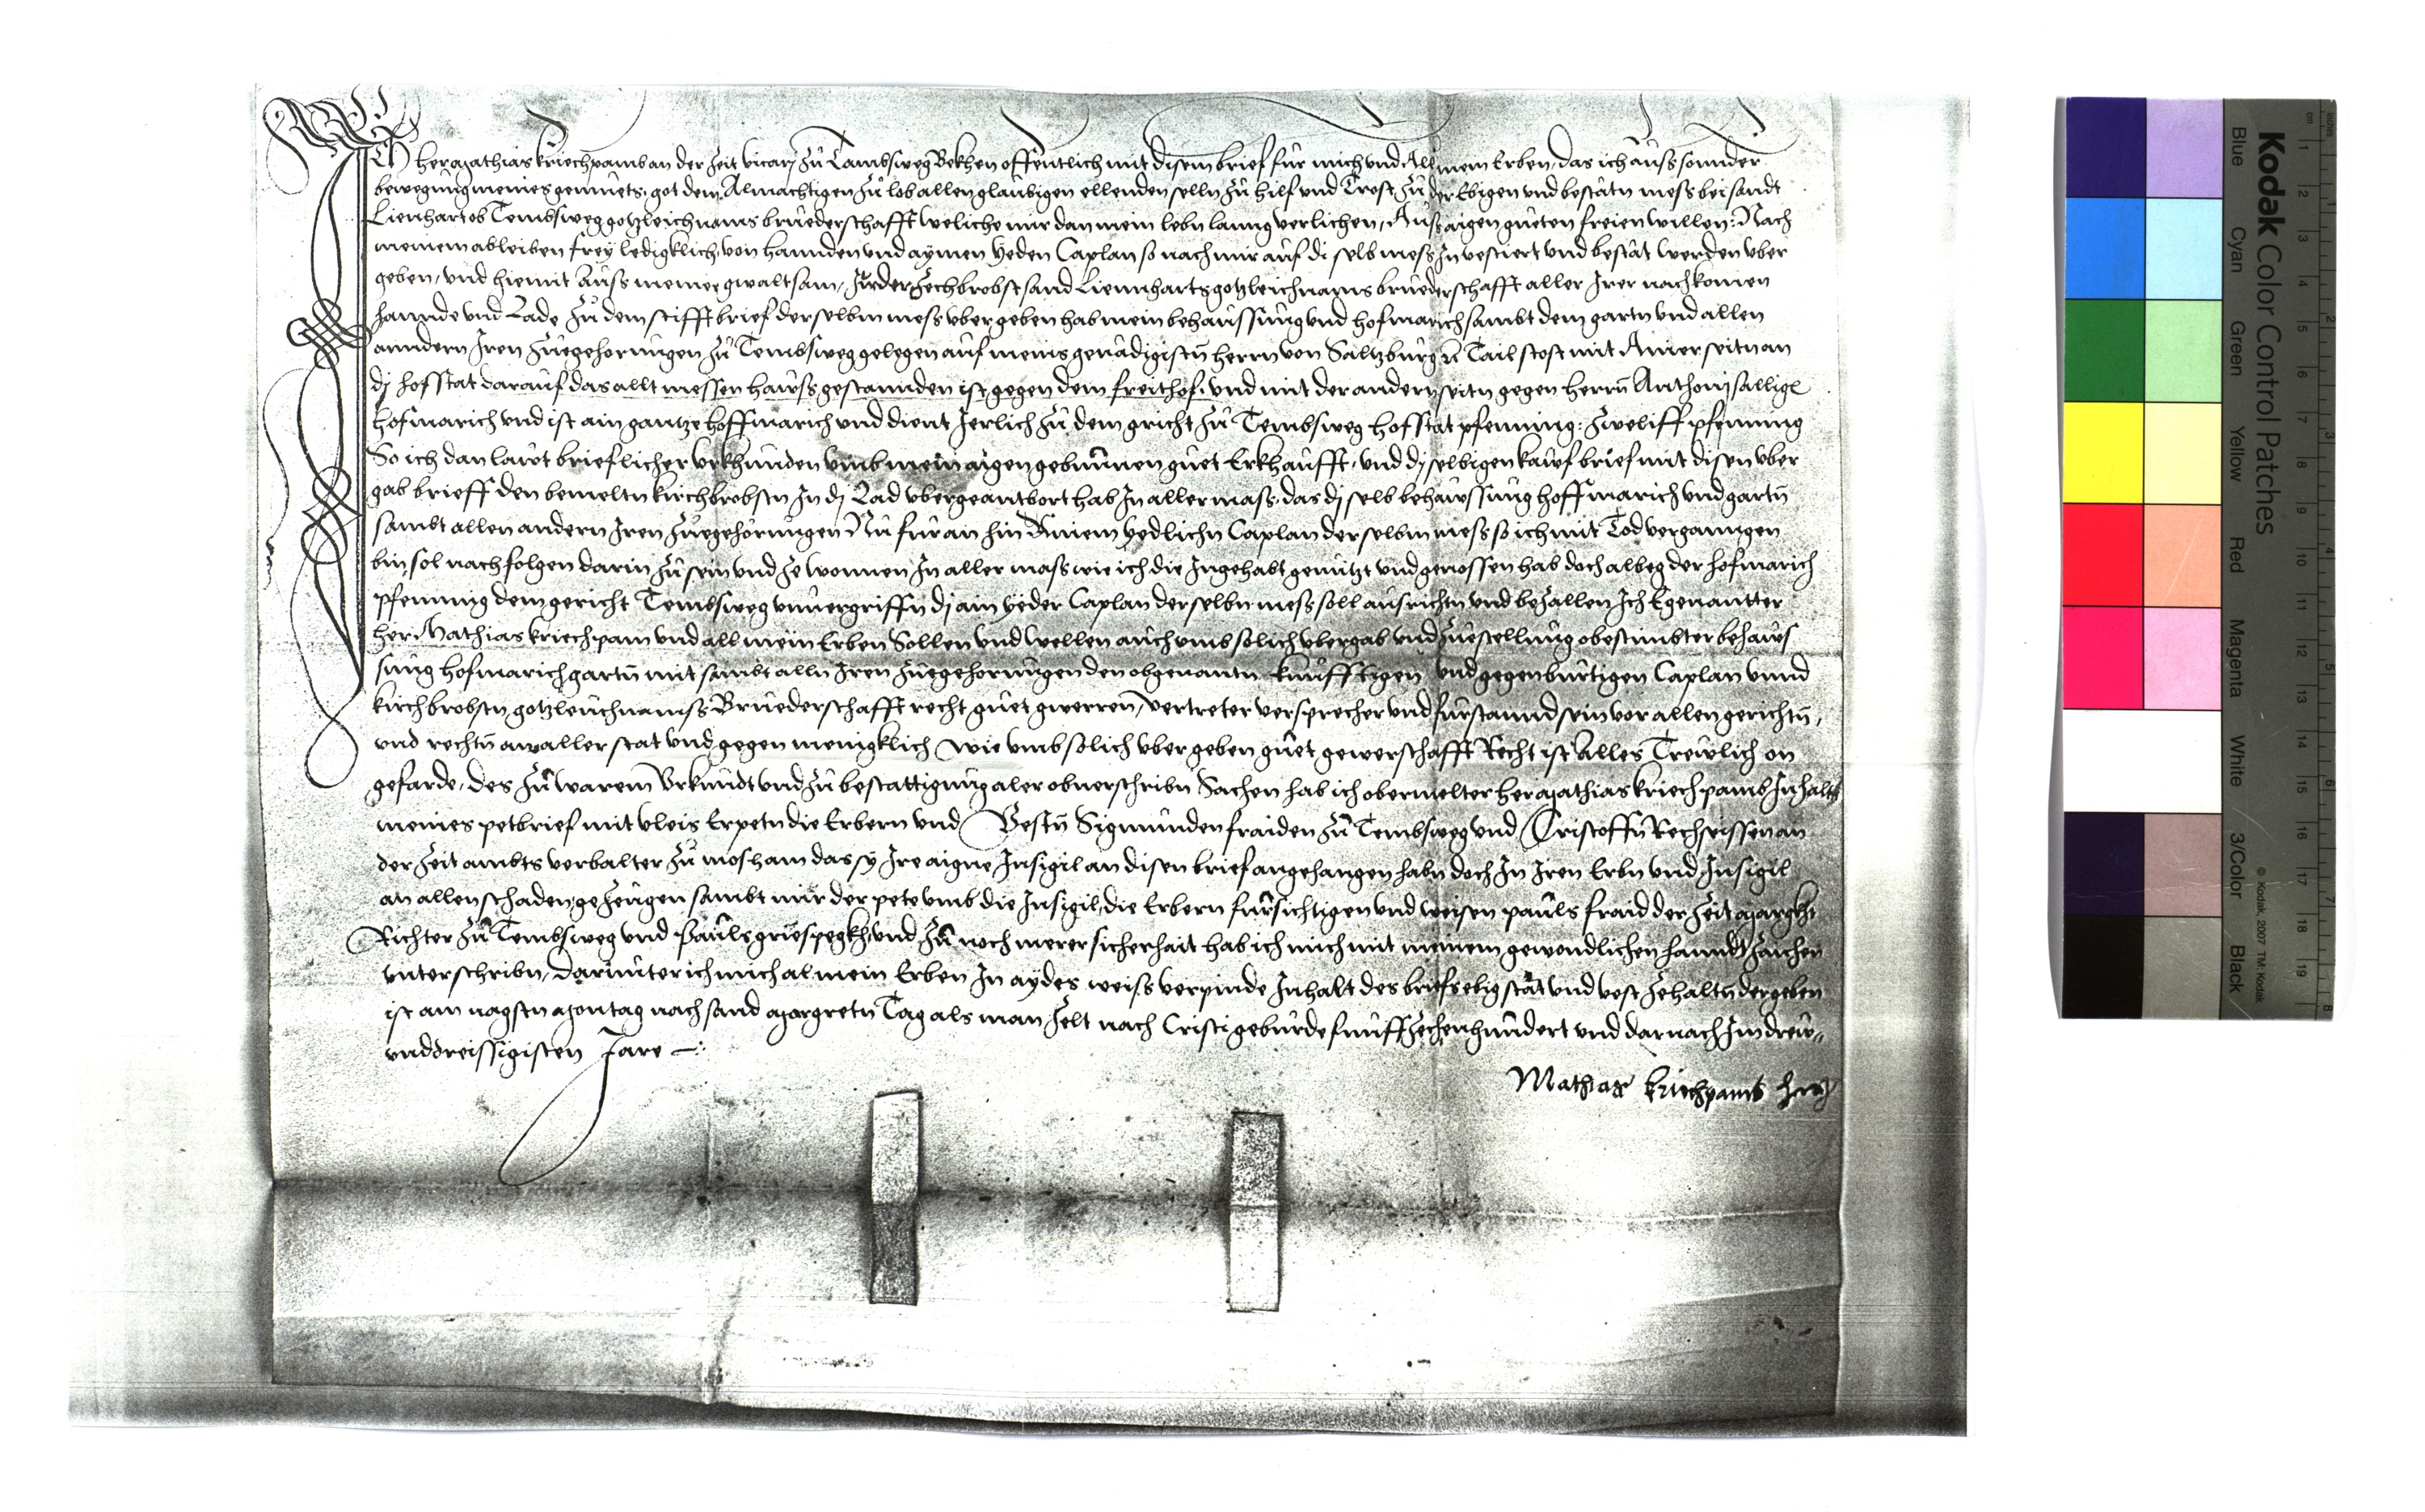 Ich her Mathias kriechpamb an der Zeit vicarj Zů Tambsweg Bekhen offentlich mit disem brief für mich vnd All mein Erben, das ich aûss sonnder
bewegûng meines gemüets, got dem Almachtigen Zů lob allen glaûbigen ellenden selln Zů hilf vnd Trost Zů der Ebigen vnd bestâtn mess bei sandt
Lienhart ob Tembsweg gotzleichnams brûederschafft weliche mir dan mein lebn lanng verlichen, Aûs aigen gûeten freien willen: Nach
meinem ableiben frey ledigklich, von hannden vnd aymen yeden Caplan so nach mir aûf di selb mess Inuestiert vnd bestât werden vber
geben, vnd hiemit Aûss meiner gwaltsam, In der Zechbrobst sand Liennharts gotzleichnams brûederschafft aller Irer nachkomen
hannde vnd Lade Zů dem stifftbrief derselbm mess vbergeben hab mein behaûssûng vnd hofmarich sambt dem gartn vnd allen
anndern Iren Zûegehorûngen Zů Tembsweg gelegen aûf meins genâdigistn herrn von Saltzbûrg Tail stost mit Ainer seitn an
dj hofstat daraûf das allt messen haûss gestannden ist gegen dem freithof, vnd mit der andern seitn gegen herrn Anthonj sallige
hofmarich vnd ist ain gantze hoffmarich vnd dient Jerlich Zů dem gricht Zů Tembsweg hofstat pfenning: Zweliff pfenning
So ich dan laût brieflicher vrkhûnden vmb mein aigen gebûnnen gûet Erkhaûfft, vnd dj selbigen kaûfbrief mit disen vber
gab brieff den bemeltn kirchbrobstn In dj Lad vbergeantbort hab In aller mass, das dj selb behaûssûng hoffmarich vnd gartn
sambt allen andern Iren Zûegehorûngen Nû fûran hin Ainem yedlichn Caplan derselbm mess so ich mit Tod vergangen
bin sol nachfolgen darin Zů sein vnd Ze wonnen In aller mass wie ich die Ingehabt genûtzt vnd genossen hab doch albeg der hofmarich
pfenning dem gericht Tembsweg vnuergriffn dj ain yeder Caplan derselbn mess soll aûsrichtn vnd beZallen Ich Egenantter
her Mathias kriechpam vnd all mein Erben Sollen vnd wellen aûch vmb solich vbergab vnd Zûestellûng obestimbter behaws
sûng hofmarich gartn mit sambt alln Iren Zûegehorûngen den obgenantn kûnfftigen vnd gegenbûrtigen Caplan vnnd
kirchbrobstn gotzleichnamss Brûederschafft recht gûet gwerren, vertreter versprecher vnd fûrstannd sein vor allen gerichtn,
vnd rechtn an aller stat vnd gegen menigklich wie vmb solich vbergeben gûet gewerschafft Recht ist Alles Trewlich on
gefarde, des Zů warem Vrkûndt vnd Zů bestattigûng aler obuerschribn Sachen hab ich obermelter her Mathias kriechpamb Inhalt
meines petbrief mit vleis Erpetn die Erbern vnd Vestn Sigmûnden fraiden Zů Tembsweg vnd Cristoffn Rechseissen an
der Zeit ambts verbalter Zů mosham das sy Ire aigne Insigil an disen brief angehangen habn doch In Iren Erbn vnd Insigil
an allen schaden, geZeûgen sambt mir der pete vmb die Insigil, die Erbern fûrsichtigen vnd weisen paûls fraid der Zeit Margkt
Richter Zů Tembsweg vnd Paûls griespegkh, vnd Zů noch merer sicherhait hab ich mich mit meinem gewondlichen hanndtZaichen
vnterschribn, Darûnter ich mich al mein Erben In aydes weiss verpinde Inhalt des briefs ebig stât vnd vest Zehaltn der geben
ist am nagstn Montag nach sand Margretn Tag als man Zelt nach Cristi gebûrde fûnffZechenhûndert vnd darnach Im drew„
vnddreissigisten Jare
Mathias kriechpamb
Kodak Color Control Patches
Blue Cyan Green Yellow Red Magenta White 3/Color Black
© Kodak, 2007 TM: Kodak
cm 1 2 3 4 5 6 7 8 9 10 11 12 13 14 15 16 17 18 19
inches 1 2 3 4 5 6 7 8